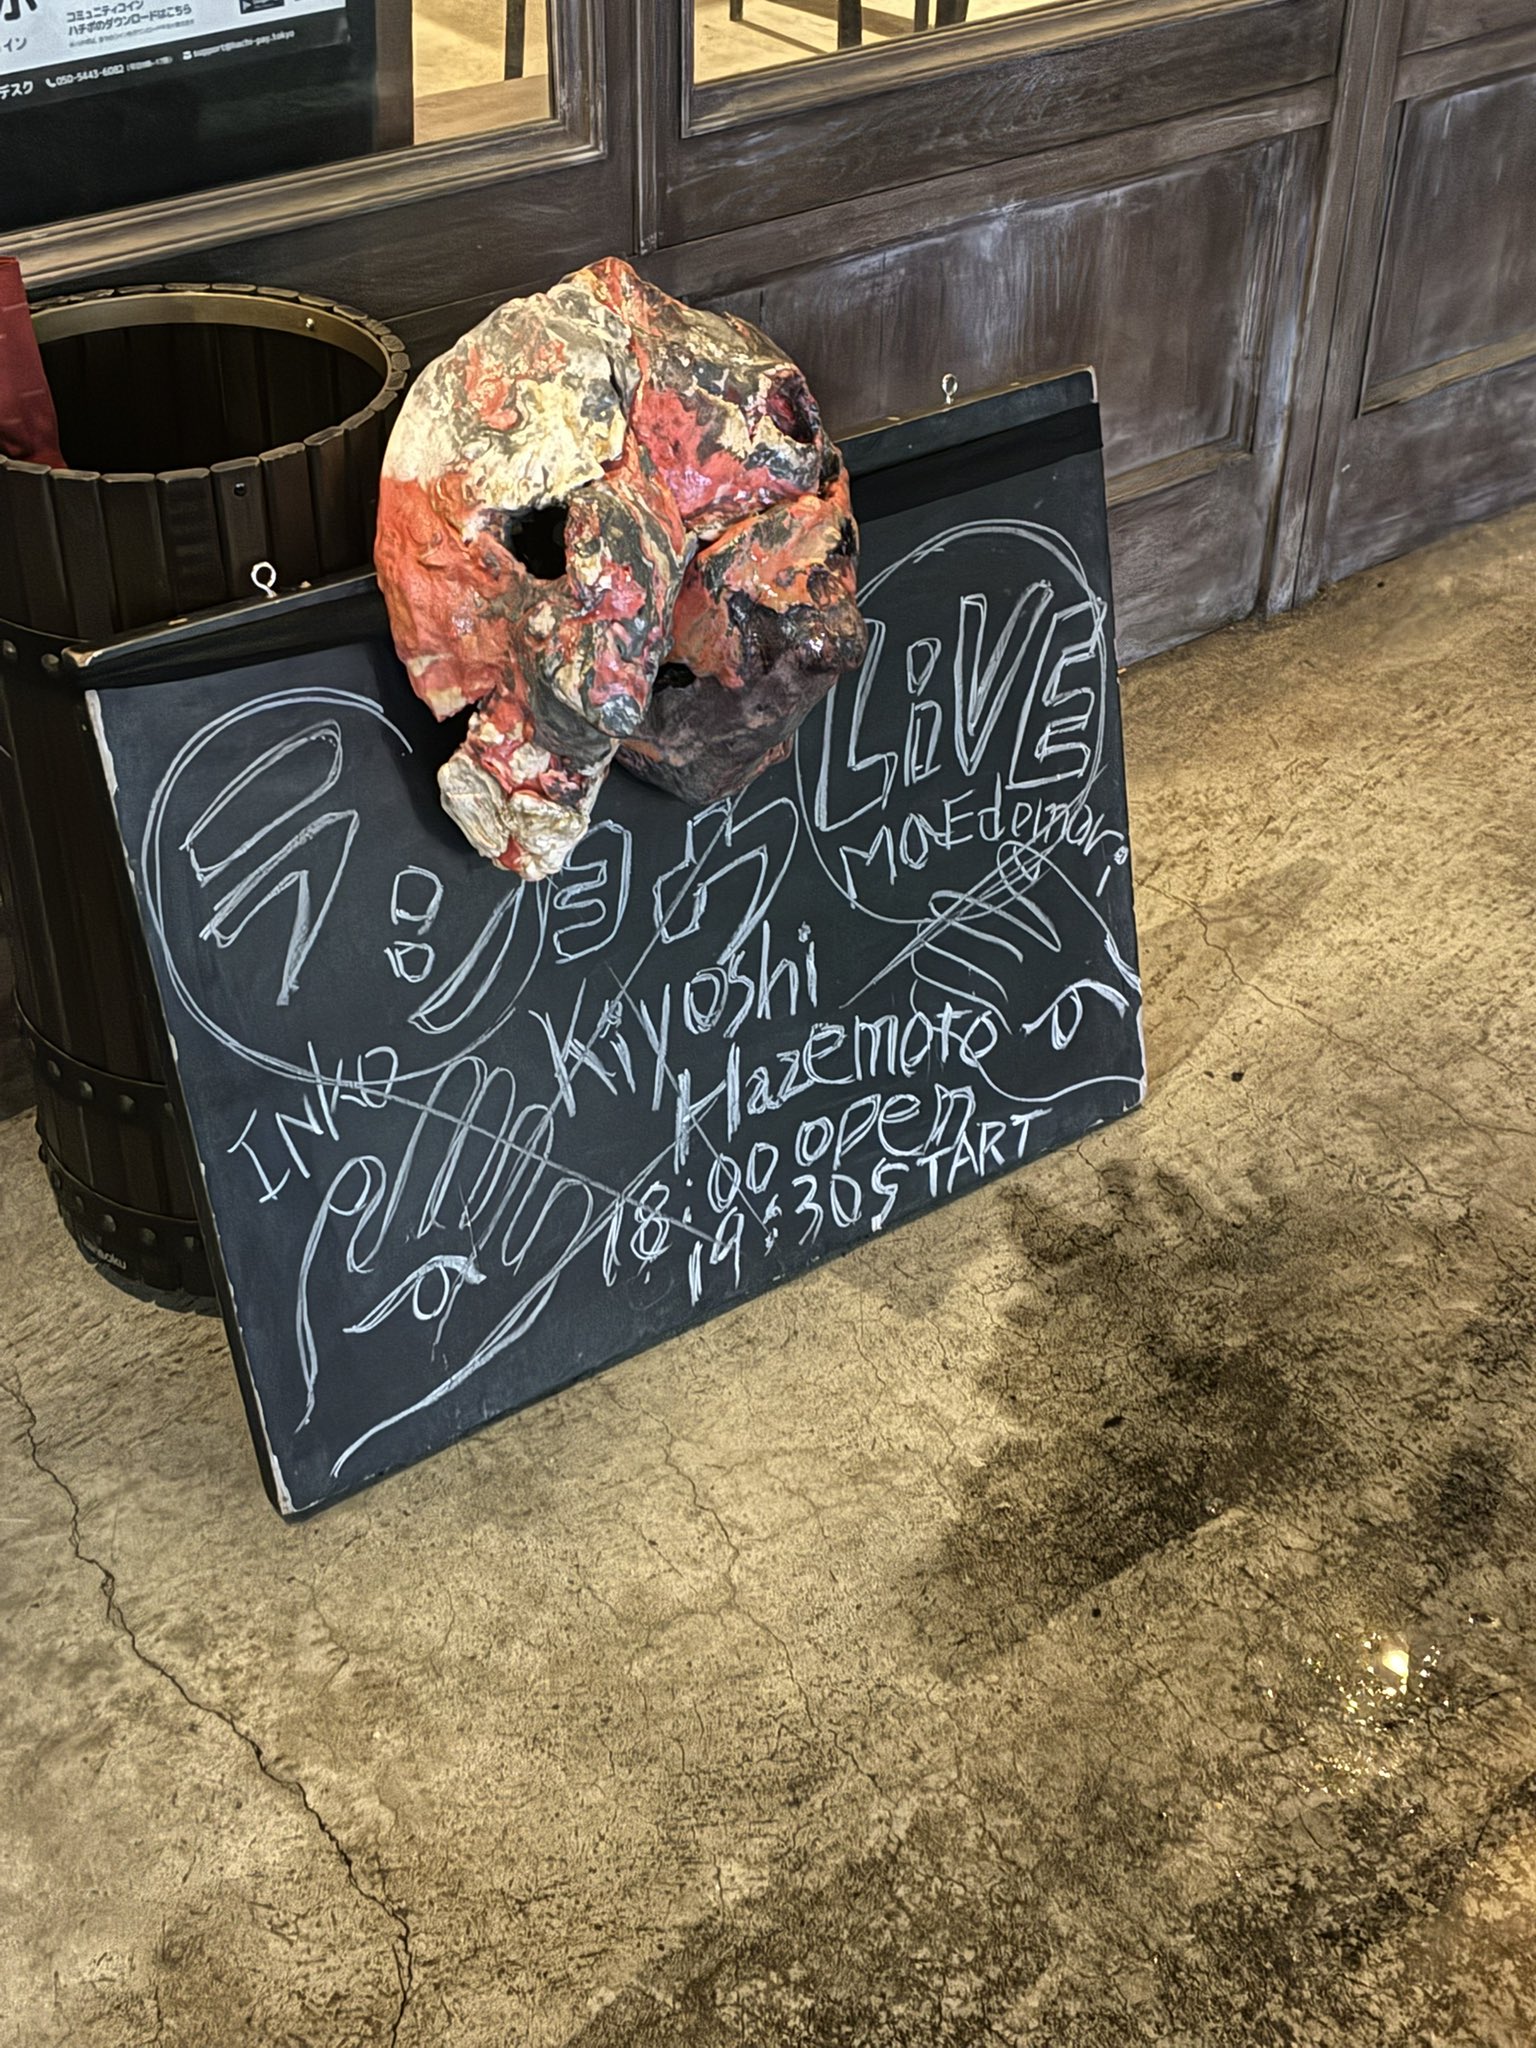 コミュニティコイン
ハチポのダウンロードはこちら
イン
デスク 050-5443-6082
support@hachi-pay.tokyo
LiVE
MOEdemori
Kiyoshi
Hazemoto
INKO
18:00 open
19:30 START